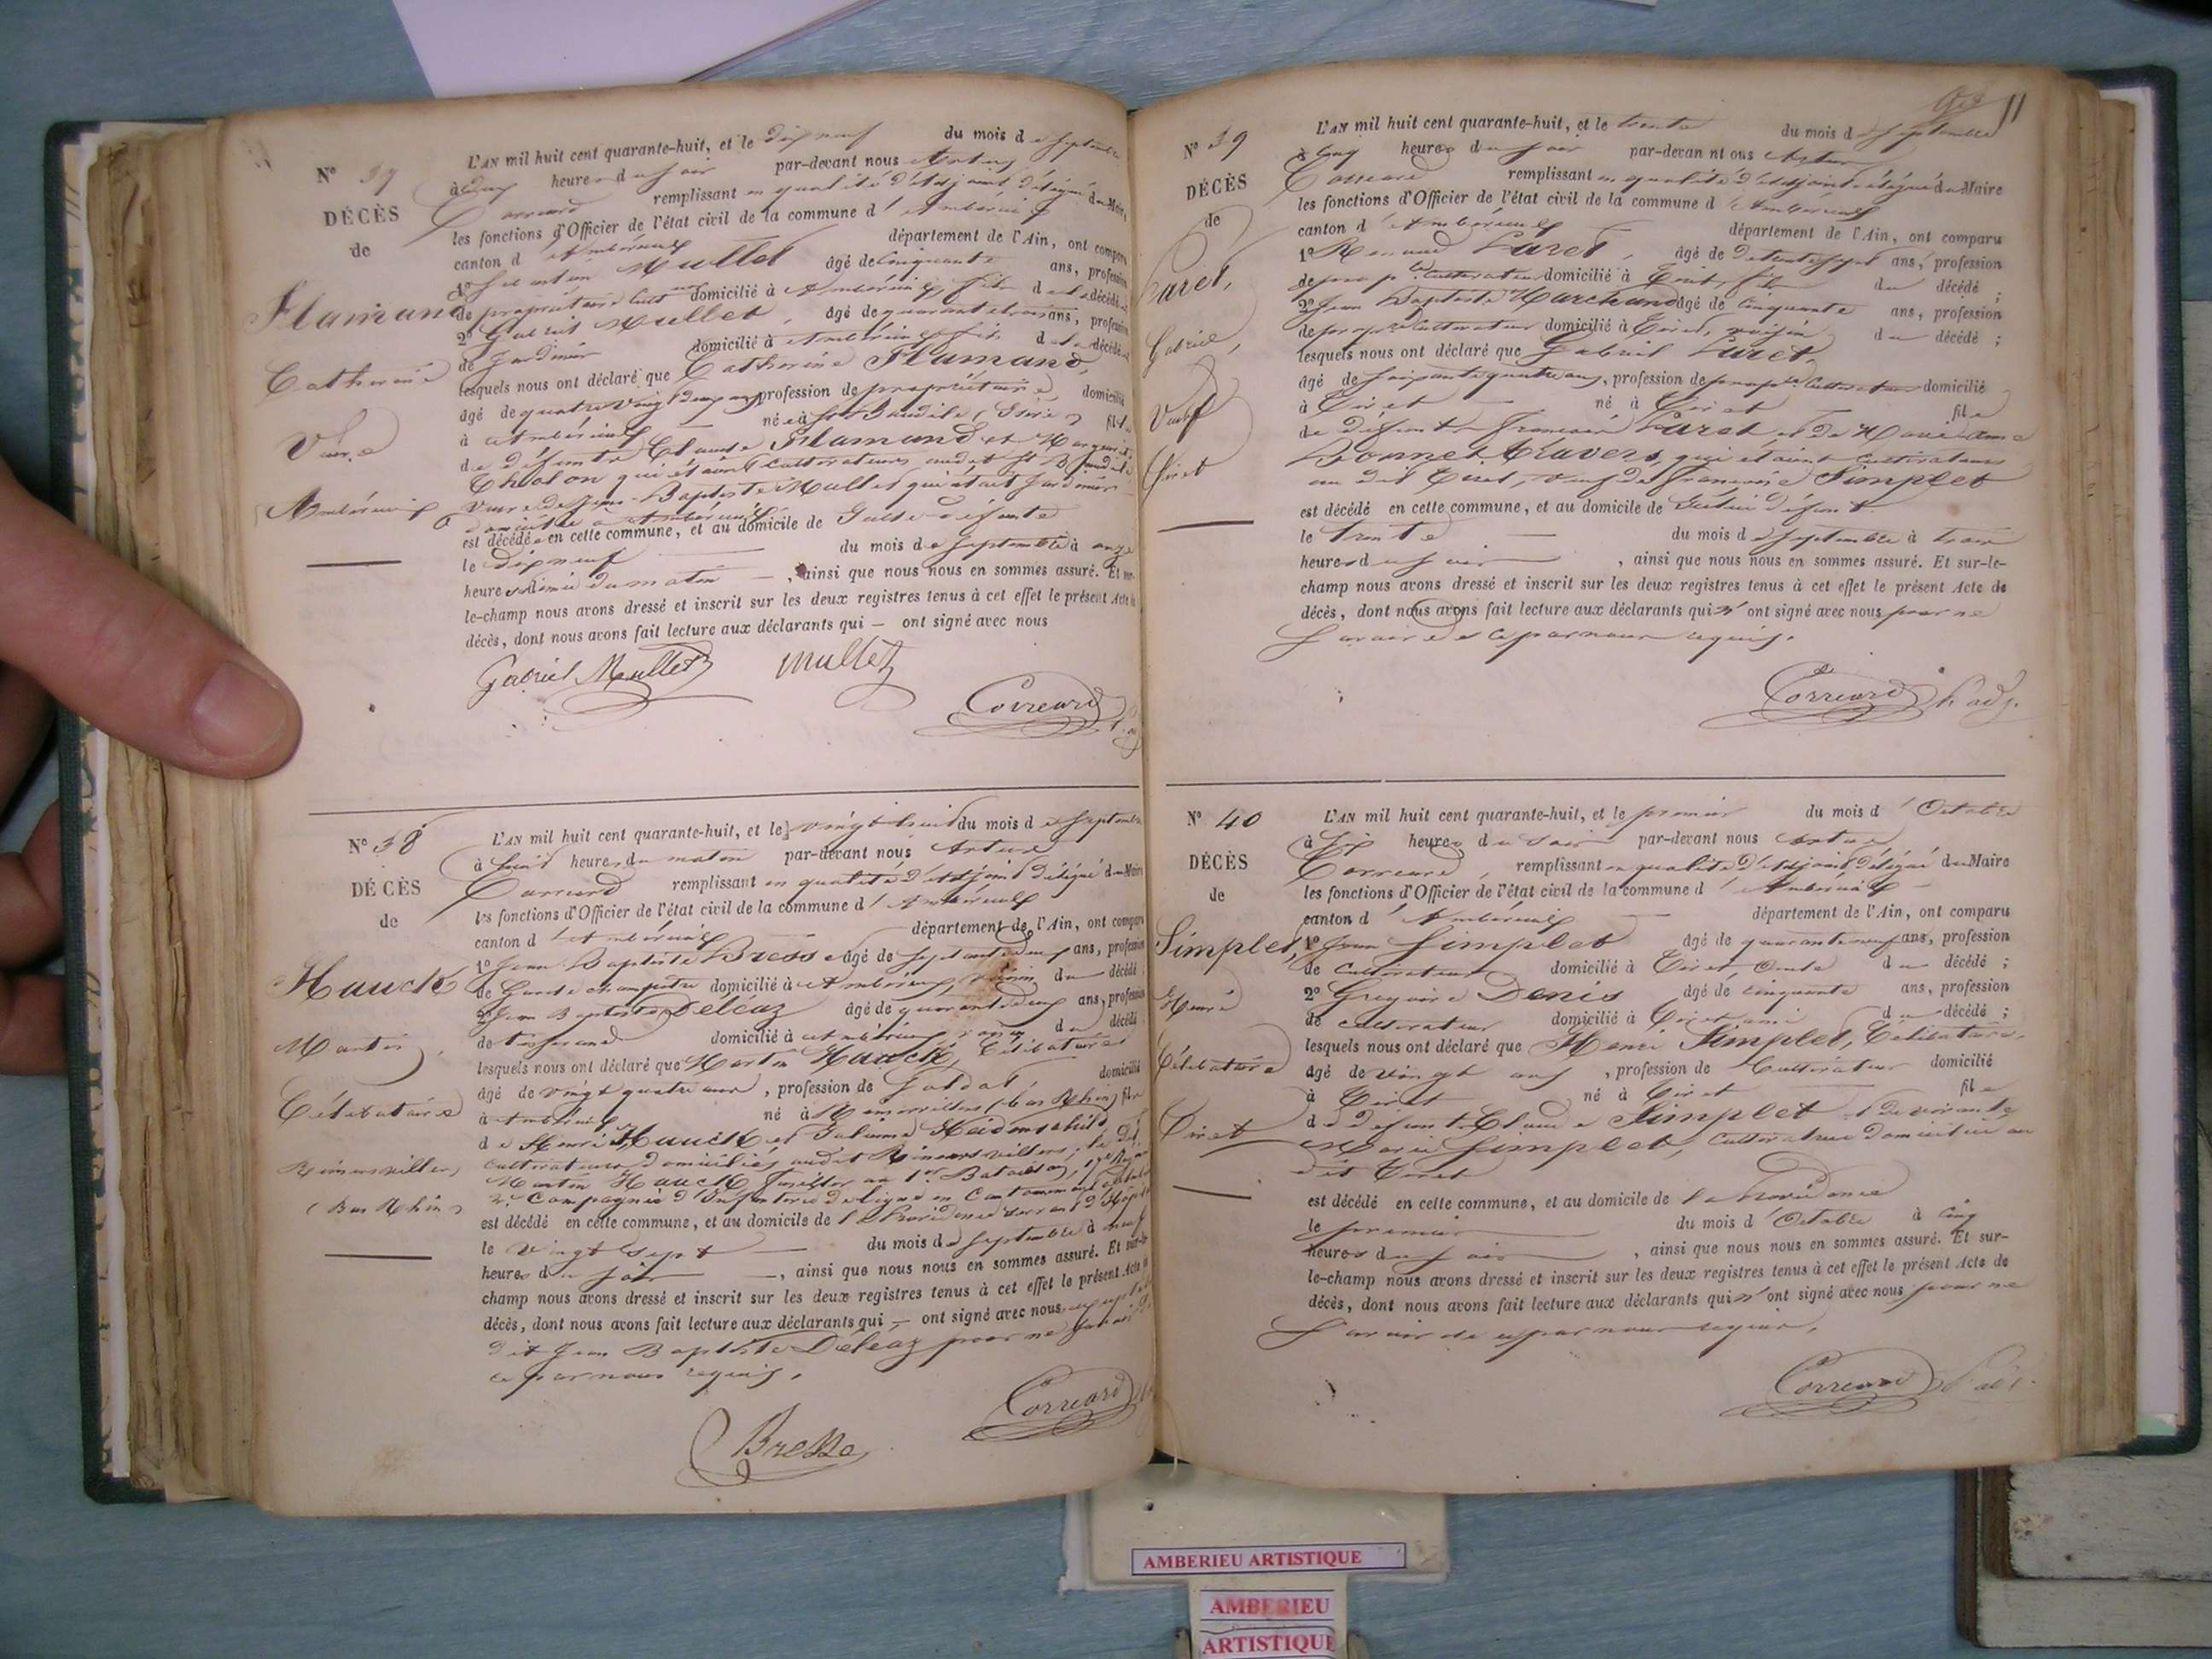 N° 37
DÉCÈS
de
Flamand
Catherine
Veuve
Ambérieux
L'AN mil huit cent quarante-huit, et le dix neuf du mois de Septembre
à heures du soir par-devant nous Artus
Correard remplissant en qualité d'Adjoint délégué du Maire,
les fonctions d'Officier de l'état civil de la commune d'Ambérieux
canton d'Ambérieux département de l'Ain, ont comparu
1° Mullet âgé de cinquante ans, profession
de propriétaire cult domicilié à Ambérieux, fils de la décédée
2° Gabriel Mullet, âgé de quarante trois ans, profession
de Jardinier domicilié à Ambérieux, fils de la décédée
lesquels nous ont déclaré que Catherine Flamand,
âgée de quatre vingt ans, profession de propriétaire domiciliée
à Ambérieux née à St Baudile (Isère) fille
de défunts Claude Flamand et Marguerite
qui étaient cultivateurs audit St Baudile
Veuve de Jean-Baptiste Mullet qui était Jardinier
domiciliée à Ambérieux
est décédée en cette commune, et au domicile de ladite défunte
le dix neuf du mois de Septembre à onze
heures et demie du matin, ainsi que nous nous en sommes assuré. Et sur-
le-champ nous avons dressé et inscrit sur les deux registres tenus à cet effet le présent Acte de
décès, dont nous avons fait lecture aux déclarants qui — ont signé avec nous
Gabriel Mullet Mullet
Correard
N° 38
DÉCÈS
de
Hauck
Martin,
Célibataire
(Bas Rhin)
L'AN mil huit cent quarante-huit, et le vingt huit du mois de Septembre
à huit heures du matin par-devant nous Artus
Correard remplissant en qualité d'Adjoint délégué du Maire
les fonctions d'Officier de l'état civil de la commune d'Ambérieux
canton d'Ambérieux département de l'Ain, ont comparu
1° Jean Baptiste Bresse âgé de ans, profession
de Garde champêtre domicilié à Ambérieux, voisin du décédé
2° Jean Baptiste Deléaz âgé de quarante deux ans, profession
de tisserand domicilié à Ambérieux, voisin du décédé
lesquels nous ont déclaré que Martin Hauck, Célibataire
âgé de vingt quatre ans, profession de Soldat, domicilié
à Ambérieux né à (bas Rhin) fils
de Henri Hauck et
cultivateurs domiciliés audit le dit
Martin Hauck fusilier au 1er Bataillon,
2e Compagnie d'Infanterie de ligne en Cantonnement
est décédé en cette commune, et au domicile de la Providence servant d'Hôpital
le vingt sept du mois de Septembre à neuf
heures du soir —, ainsi que nous nous en sommes assuré. Et sur-le-
champ nous avons dressé et inscrit sur les deux registres tenus à cet effet le présent Acte de
décès, dont nous avons fait lecture aux déclarants qui — ont signé avec nous
dit Jean Baptiste Deléaz pour ne savoir de
ce par nous requis.
Correard
Bresse
11
N° 39
DÉCÈS
de
Gabriel,
Veuf
L'AN mil huit cent quarante-huit, et le trente du mois de Septembre
à cinq heures du soir par-devan nt ous Artus
Correard remplissant en qualité d'Adjoint délégué du Maire
les fonctions d'Officier de l'état civil de la commune d'Ambérieux
canton d'Ambérieux département de l'Ain, ont comparu
1° âgé de trente sept ans, profession
de prop. Cultivateur domicilié à fils du décédé ;
2° Jean Baptiste Marchand âgé de cinquante ans, profession
de prop. Cultivateur domicilié à voisin du décédé ;
lesquels nous ont déclaré que Gabriel
âgé de soixante quatre ans, profession de prop. Cultivateur domicilié
à né à fils
de défunts François et de Marie Anne
Bonnet qui étaient Cultivateurs
au dit veuf de Françoise Simplet
est décédé en cette commune, et au domicile de défunt
le trente du mois de Septembre à trois
heures du soir, ainsi que nous nous en sommes assuré. Et sur-le-
champ nous avons dressé et inscrit sur les deux registres tenus à cet effet le présent Acte de
décès, dont nous avons fait lecture aux déclarants qui n'ont signé avec nous pour ne
savoir de ce par nous requis.
Correard
N° 40
DÉCÈS
de
Simplet,
Henri
Célibataire
L'AN mil huit cent quarante-huit, et le premier du mois d'Octobre
à six heures du soir par-devant nous Artus
Correard, remplissant en qualité d'Adjoint délégué du Maire
les fonctions d'Officier de l'état civil de la commune d'Ambérieux
canton d'Ambérieux département de l'Ain, ont comparu
1° Jean Simplet âgé de quarante neuf ans, profession
de Cultivateur domicilié à Oncle du décédé ;
2° Gregoire Denis âgé de cinquante ans, profession
de cultivateur domicilié à ami du décédé ;
lesquels nous ont déclaré que Henri Simplet, Célibataire,
âgé de vingt ans, profession de Cultivateur domicilié
à né à fils
de défunt Claude Simplet et de vivante
Marie Simplet, cultivatrice domiciliée au
dit
est décédé en cette commune, et au domicile de la Providence
le premier du mois d'Octobre à cinq
heures du soir, ainsi que nous nous en sommes assuré. Et sur-
le-champ nous avons dressé et inscrit sur les deux registres tenus à cet effet le présent Acte de
décès, dont nous avons fait lecture aux déclarants qui n'ont signé avec nous pour ne
savoir de ce par nous requis.
Correard
AMBERIEU ARTISTIQUE
AMBERIEU
ARTISTIQUE